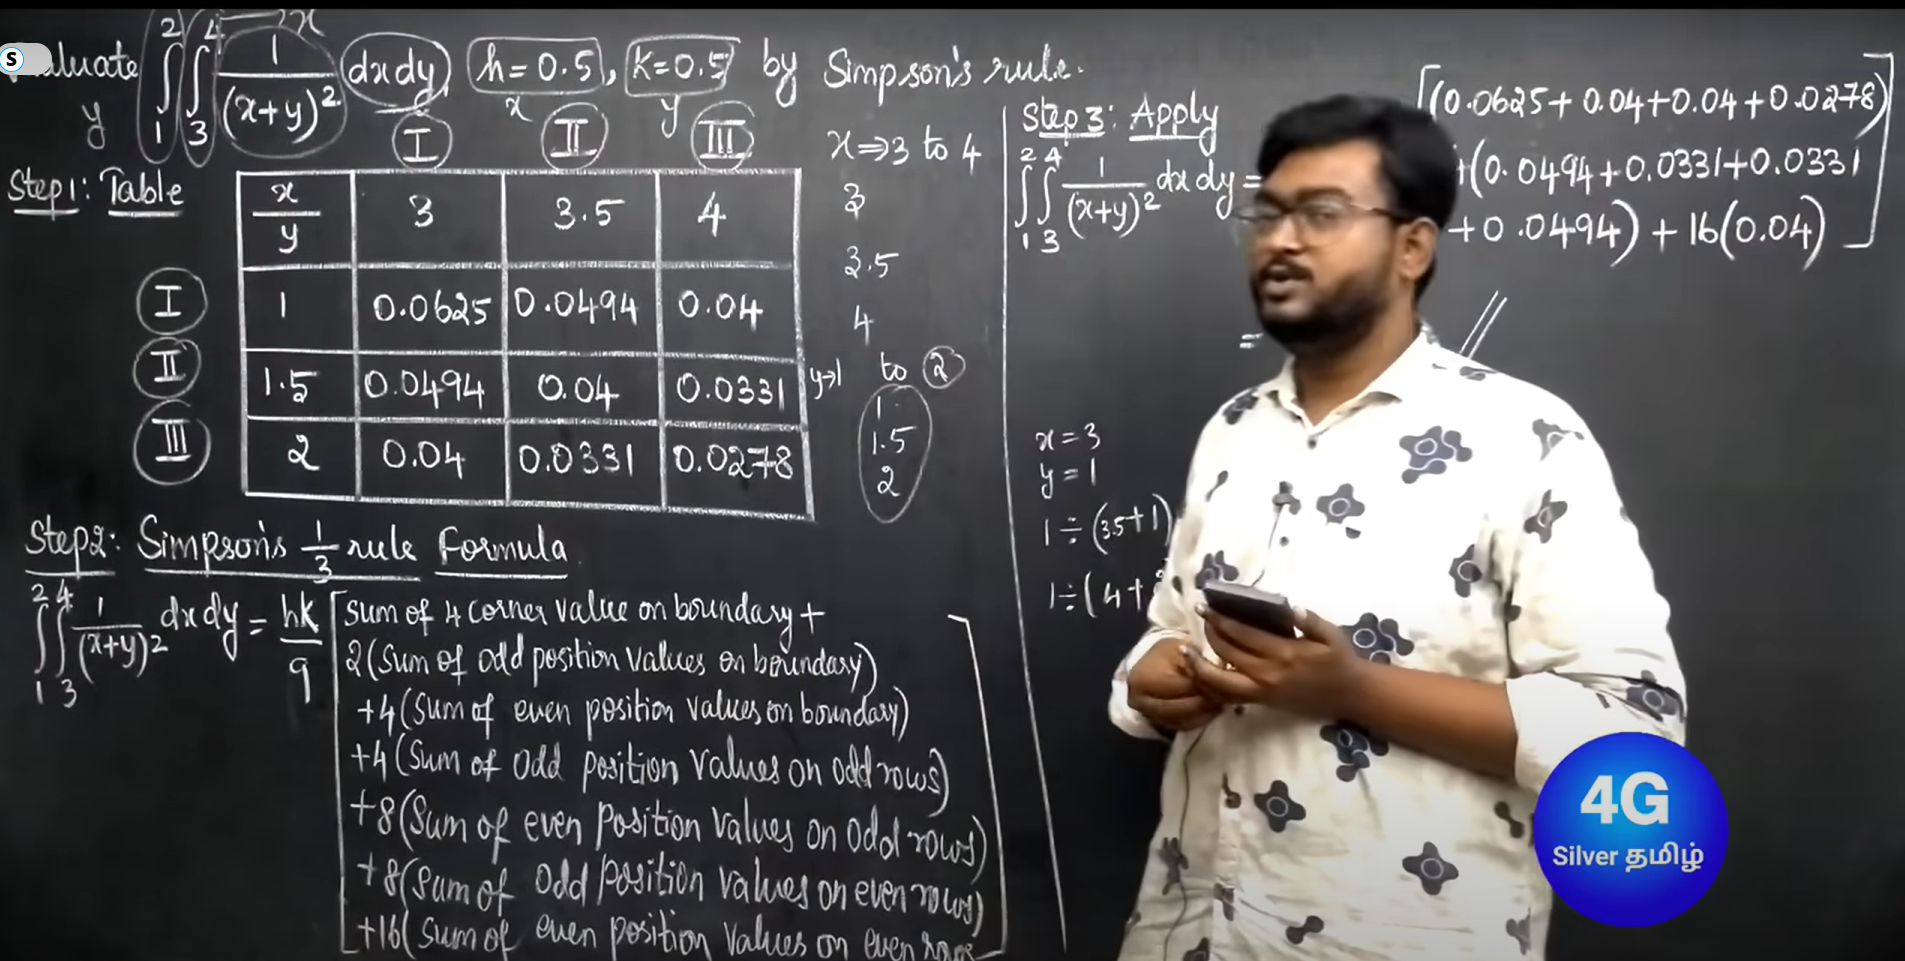 S
aluate ∫₁² ∫₃⁴ 1/(x+y)² dx dy, h = 0.5, k = 0.5 by Simpson's rule.
x
y
x
y
I II III
Step1: Table
x/y 3 3.5 4
I 1 0.0625 0.0494 0.04
II 1.5 0.0494 0.04 0.0331
III 2 0.04 0.0331 0.0278
x ⇒ 3 to 4
3
3.5
4
y→1 to 2
1
1.5
2
Step2: Simpson's 1/3 rule Formula
∫₁² ∫₃⁴ 1/(x+y)² dx dy = hk/9 [ Sum of 4 corner value on boundary +
2(Sum of odd position values on boundary)
+4(Sum of even position values on boundary)
+4(Sum of odd position values on odd rows)
+8(Sum of even position values on odd rows)
+8(Sum of odd position values on even rows)
+16(Sum of even position values on even rows
Step 3: Apply
∫₁² ∫₃⁴ 1/(x+y)² dx dy =
[(0.0625+0.04+0.04+0.0278)
+(0.0494+0.0331+0.0331
+0.0494)+16(0.04)]
=
x = 3
y = 1
1÷(3.5+1)
1÷(4+
4G
Silver தமிழ்